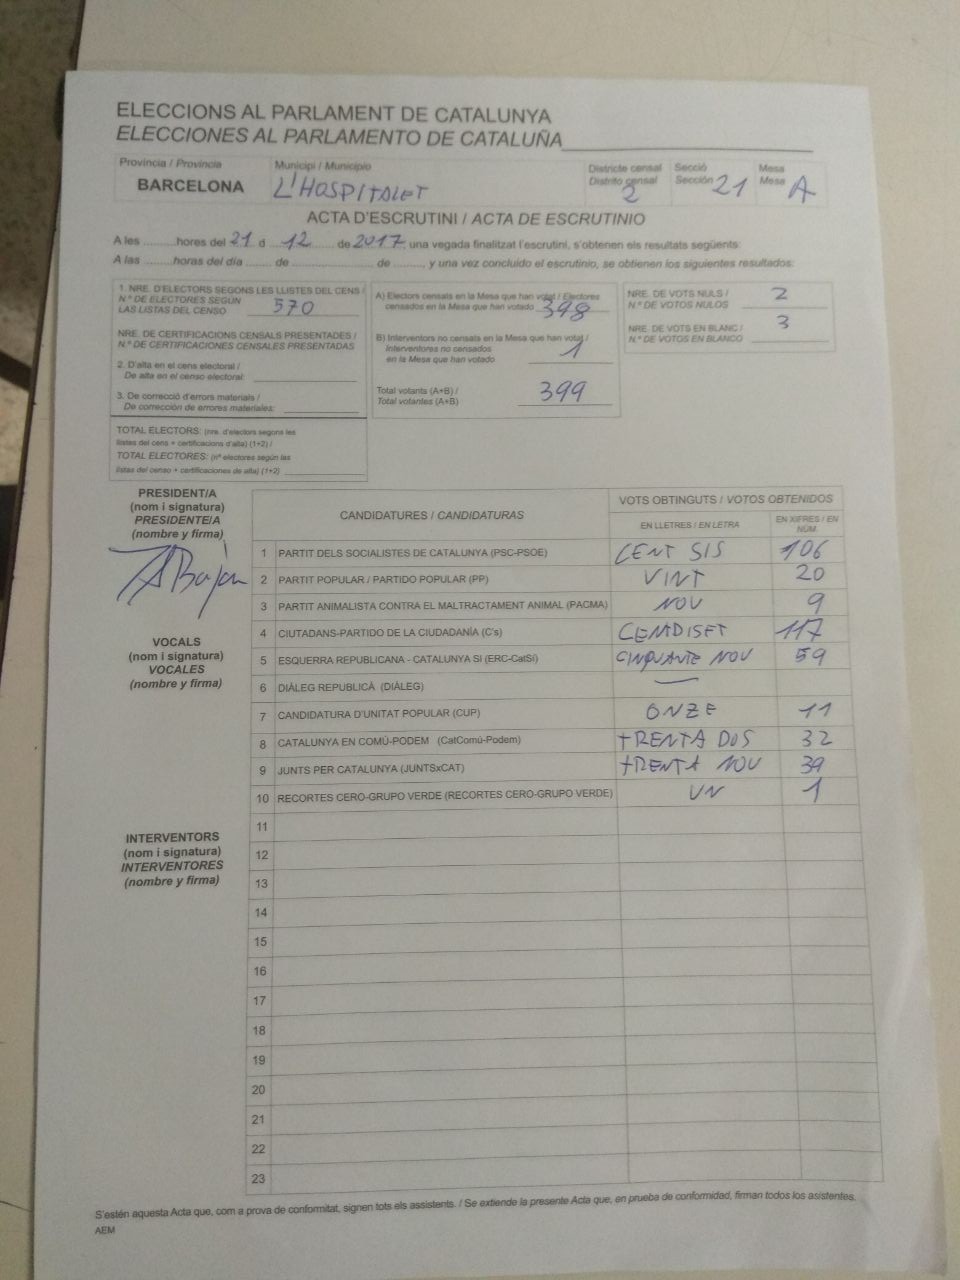 ELECCIONS AL PARLAMENT DE CATALUNYA
ELECCIONES AL PARLAMENTO DE CATALUÑA
Província / Provincia
BARCELONA
Municipi / Municipio
L'HOSPITALET
Districte censal
Distrito censal
2
Secció
Sección 21
Mesa
Mesa A
ACTA D'ESCRUTINI / ACTA DE ESCRUTINIO
A les ..........hores del 21 d 12 de 2017, una vegada finalitzat l'escrutini, s'obtenen els resultats següents:
A las ..........horas del día ........ de ........................ de ........, y una vez concluido el escrutinio, se obtienen los siguientes resultados:
1. NRE. D'ELECTORS SEGONS LES LLISTES DEL CENS /
N.º DE ELECTORES SEGÚN
LAS LISTAS DEL CENSO 570
NRE. DE CERTIFICACIONS CENSALS PRESENTADES /
N.º DE CERTIFICACIONES CENSALES PRESENTADAS
2. D'alta en el cens electoral /
De alta en el censo electoral:
3. De correcció d'errors materials /
De corrección de errores materiales:
TOTAL ELECTORS: (nre. d'electors segons les
llistes del cens + certificacions d'alta) (1+2) /
TOTAL ELECTORES: (nº electores según las
listas del censo + certificaciones de alta) (1+2)
A) Electors censats en la Mesa que han votat / Electores
censados en la Mesa que han votado 398
B) Interventors no censats en la Mesa que han votat /
Interventores no censados
en la Mesa que han votado 1
Total votants (A+B) /
Total votantes (A+B) 399
NRE. DE VOTS NULS /
N.º DE VOTOS NULOS 2
NRE. DE VOTS EN BLANC /
N.º DE VOTOS EN BLANCO 3
PRESIDENT/A
(nom i signatura)
PRESIDENTE/A
(nombre y firma)
VOCALS
(nom i signatura)
VOCALES
(nombre y firma)
INTERVENTORS
(nom i signatura)
INTERVENTORES
(nombre y firma)
CANDIDATURES / CANDIDATURAS
VOTS OBTINGUTS / VOTOS OBTENIDOS
EN LLETRES / EN LETRA
EN XIFRES / EN
NÚM.
1 PARTIT DELS SOCIALISTES DE CATALUNYA (PSC-PSOE) CENT SIS 106
2 PARTIT POPULAR / PARTIDO POPULAR (PP) VINT 20
3 PARTIT ANIMALISTA CONTRA EL MALTRACTAMENT ANIMAL (PACMA) NOU 9
4 CIUTADANS-PARTIDO DE LA CIUDADANÍA (C's) CENTDISET 117
5 ESQUERRA REPUBLICANA - CATALUNYA SÍ (ERC-CatSí) CINQUANTE NOU 59
6 DIÀLEG REPUBLICÀ (DIÀLEG) —
7 CANDIDATURA D'UNITAT POPULAR (CUP) ONZE 11
8 CATALUNYA EN COMÚ-PODEM (CatComú-Podem) TRENTA DOS 32
9 JUNTS PER CATALUNYA (JUNTSxCAT) TRENTA NOU 39
10 RECORTES CERO-GRUPO VERDE (RECORTES CERO-GRUPO VERDE) UN 1
11
12
13
14
15
16
17
18
19
20
21
22
23
S'estén aquesta Acta que, com a prova de conformitat, signen tots els assistents. / Se extiende la presente Acta que, en prueba de conformidad, firman todos los asistentes.
AEM